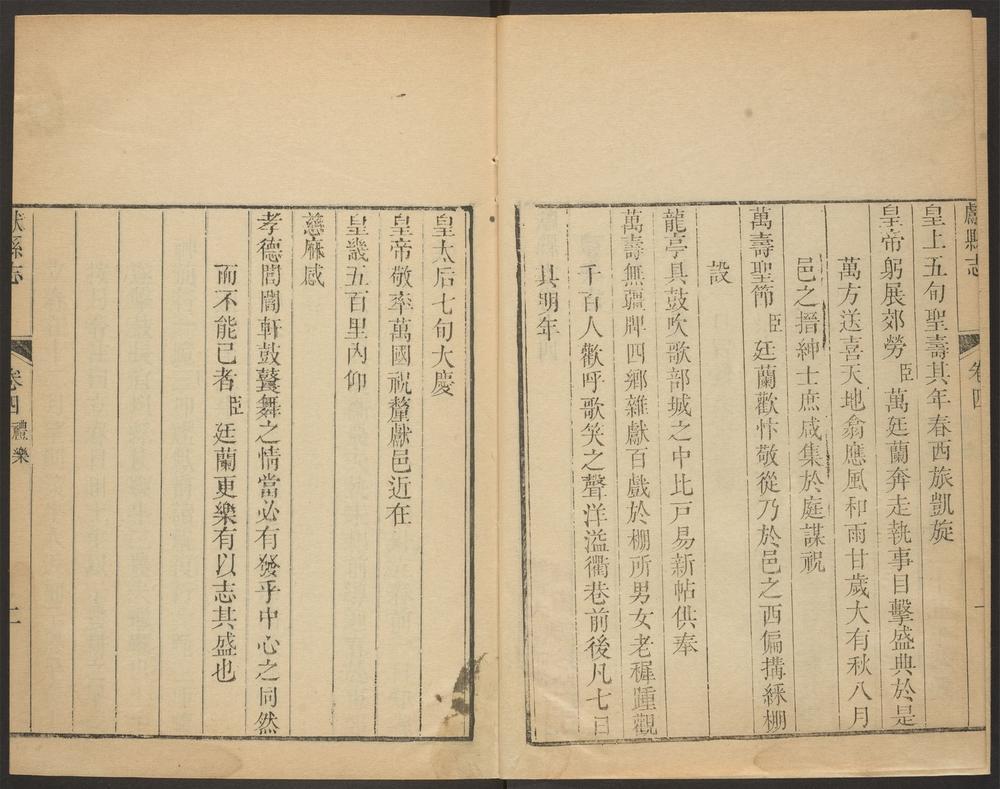 獻縣志
卷四
一
皇上五旬聖壽其年春西旅凱旋
皇帝躬展郊勞臣萬廷蘭奔走執事目擊盛典於是
萬方送喜天地翕應風和雨甘歲大有秋八月
邑之搢紳士庶咸集於庭謀祝
萬壽聖節臣廷蘭歡忭敬從乃於邑之西偏搆綵棚
設
龍亭具鼓吹歌部城之中比戸易新帖供奉
萬壽無疆牌四鄉雜獻百戲於棚所男女老穉踵觀
千百人歡呼歌笑之聲洋溢衢巷前後凡七日
其明年
皇太后七旬大慶
皇帝敬率萬國祝釐獻邑近在
皇畿五百里內仰
慈庥感
孝德誾誾軒鼓鼚舞之情當必有發乎中心之同然
而不能已者臣廷蘭更樂有以志其盛也
獻縣志
卷四
禮樂
二